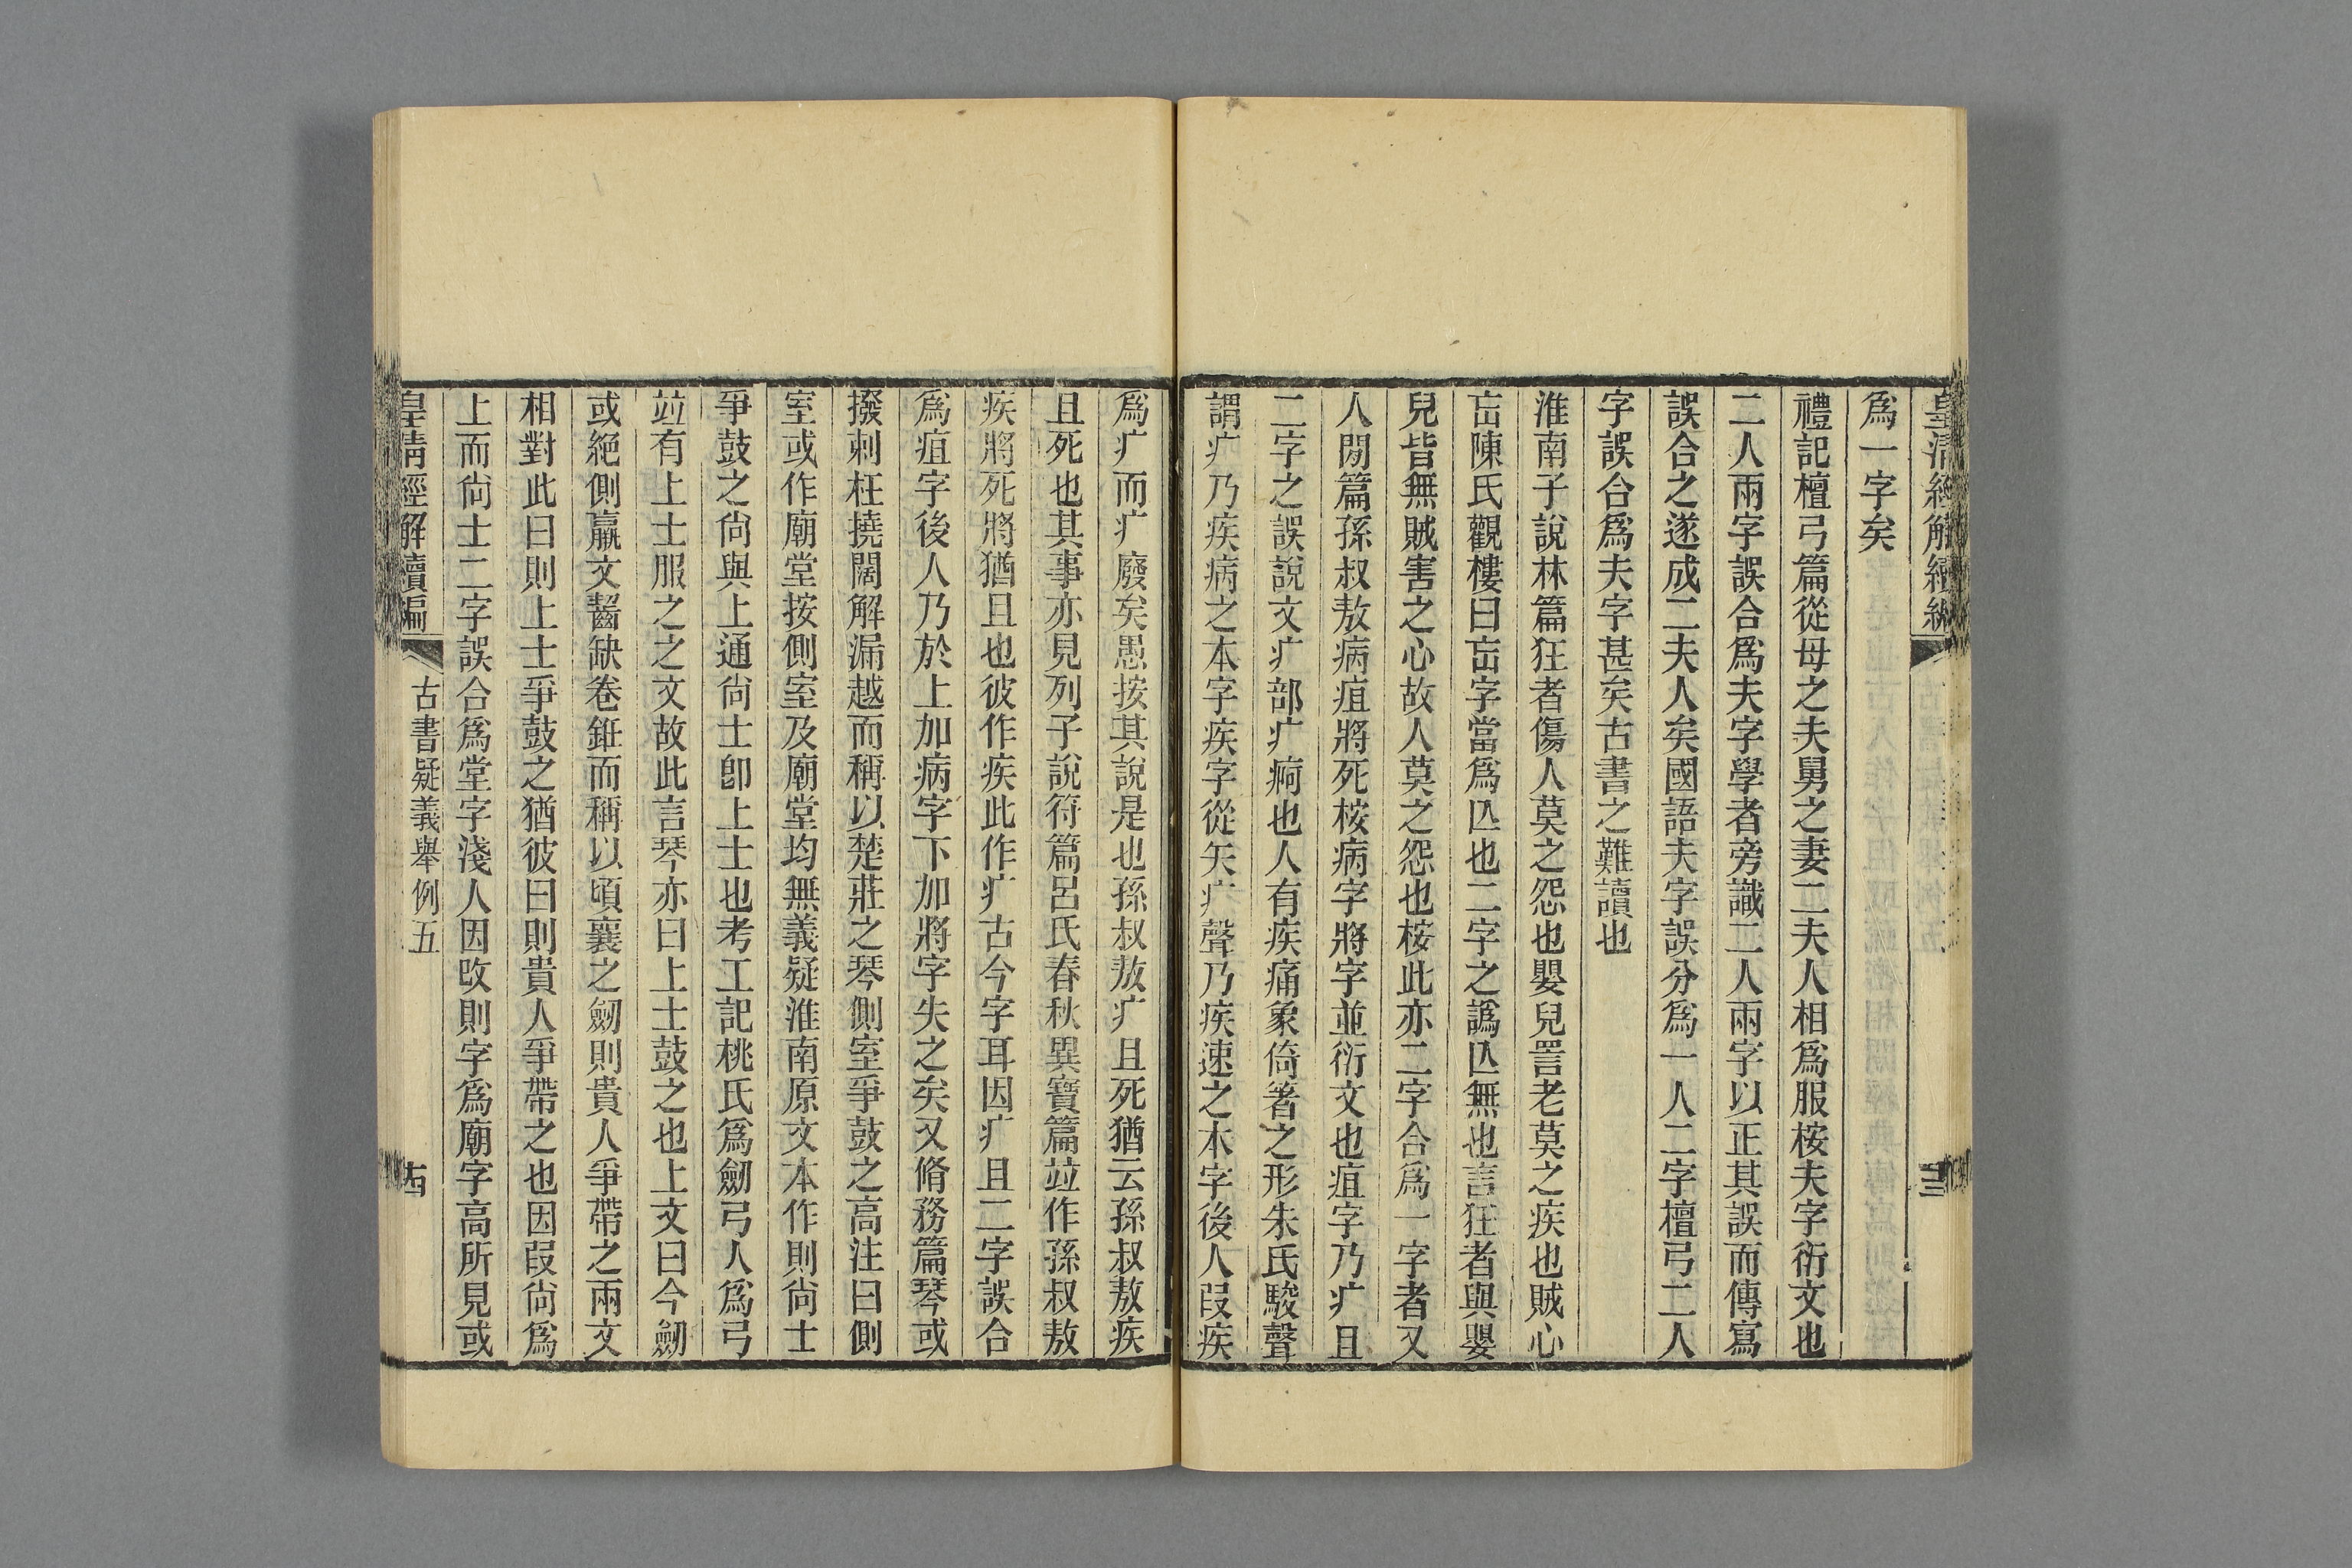 皇清經解續編
三
爲一字矣
禮記檀弓篇從母之夫舅之妻二夫人相爲服桉夫字衍文也
二人兩字誤合爲夫字學者旁識二人兩字以正其誤而傳寫
誤合之遂成二夫人矣國語夫字誤分爲一人二字檀弓二人
字誤合爲夫字甚矣古書之難讀也
淮南子說林篇狂者傷人莫之怨也嬰兒詈老莫之疾也賊心
㠵陳氏觀樓曰㠵字當爲亾也二字之譌亾無也言狂者與嬰
兒皆無賊害之心故人莫之怨也桉此亦二字合爲一字者又
人閒篇孫叔敖病疽將死桉病字將字並衍文也疽字乃疒且
二字之誤說文疒部疒痾也人有疾痛象倚箸之形朱氏駿聲
謂疒乃疾病之本字疾字從矢疒聲乃疾速之本字後人叚疾
爲疒而疒廢矣愚按其說是也孫叔敖疒且死猶云孫叔敖疾
且死也其事亦見列子說符篇呂氏春秋異寶篇竝作孫叔敖
疾將死將猶且也彼作疾此作疒古今字耳因疒且二字誤合
爲疽字後人乃於上加病字下加將字失之矣又脩務篇琴或
撥剌枉撓闊解漏越而稱以楚莊之琴側室爭鼓之高注曰側
室或作廟堂按側室及廟堂均無義疑淮南原文本作則尙士
爭鼓之尙與上通尙士卽上士也考工記桃氏爲劒弓人爲弓
竝有上士服之之文故此言琴亦曰上士鼓之也上文曰今劒
或絕側羸文齧缺卷銋而稱以頃襄之劒則貴人爭帶之兩文
相對此曰則上士爭鼓之猶彼曰則貴人爭帶之也因叚尙爲
上而尙士二字誤合爲堂字淺人因攺則字爲廟字高所見或
皇清經解續編
古書疑義舉例五
古